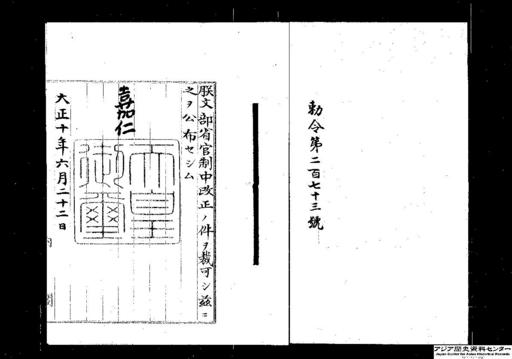 勅令第二百七十三號
朕文部省官制中改正ノ件ヲ裁可シ茲ニ
之ヲ公布セシム
嘉仁
天皇御璽
大正十年六月二十二日
内閣
アジア歴史資料センター
Japan Center for Asian Historical Records